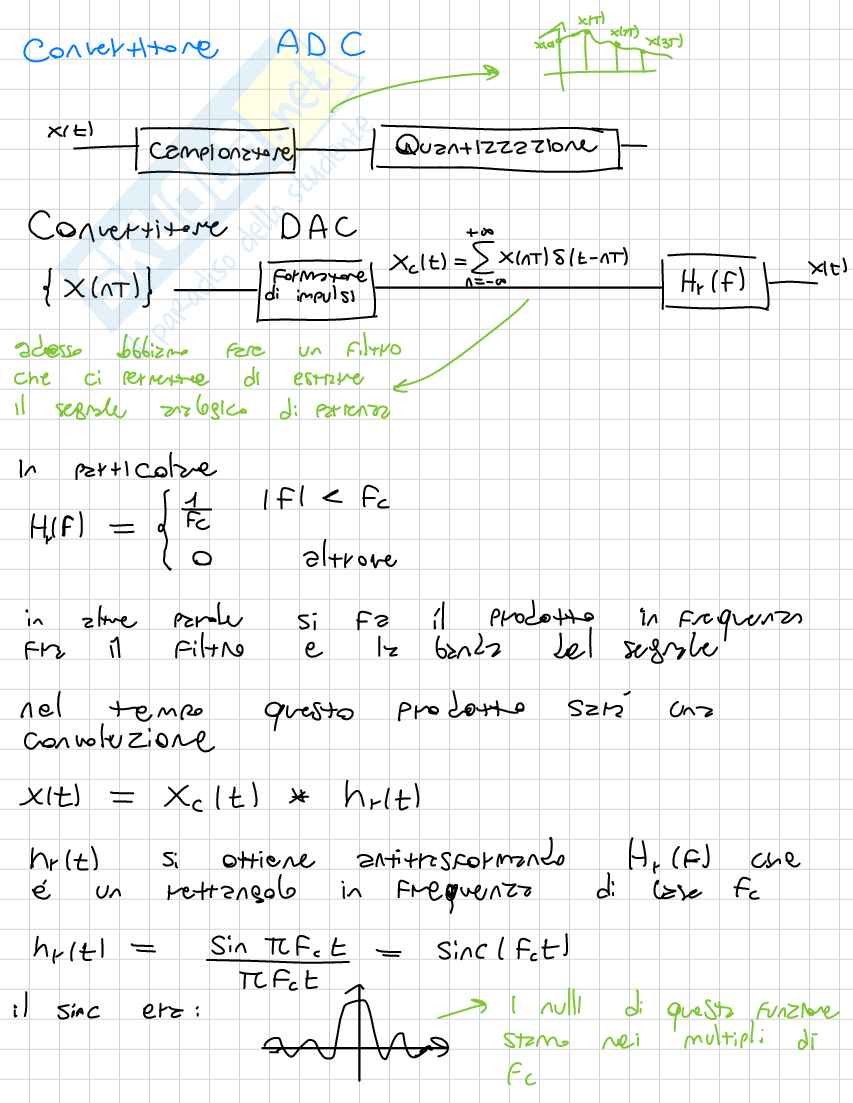 Convertitore ADC
x(0) x(T) x(2T) x(3T)
x(t)
Campionatore
Quantizzazione
Convertitore DAC
{x(nT)}
Formazione di impulsi
Xc(t) = Σ_{n=-∞}^{+∞} x(nT) δ(t-nT)
Hr(f)
x(t)
adesso bbiamo fare un filtro
che ci permette di estrarre
il segnale analogico di partenza
In particolare
Hr(f) = { 1/Fc |f| < Fc
0 altrove
in altre parole si fa il prodotto in frequenza
fra il filtro e la banda del segnale
nel tempo questo prodotto sarà una
convoluzione
x(t) = Xc(t) * hr(t)
hr(t) si ottiene antitrasformando Hr(f) che
é un rettangolo in frequenza di base Fc
hr(t) = sin πFct / πFct = sinc(Fct)
il sinc era:
I nulli di questa funzione
stanno nei multipli di
Fc
.net
paradiso dello studente